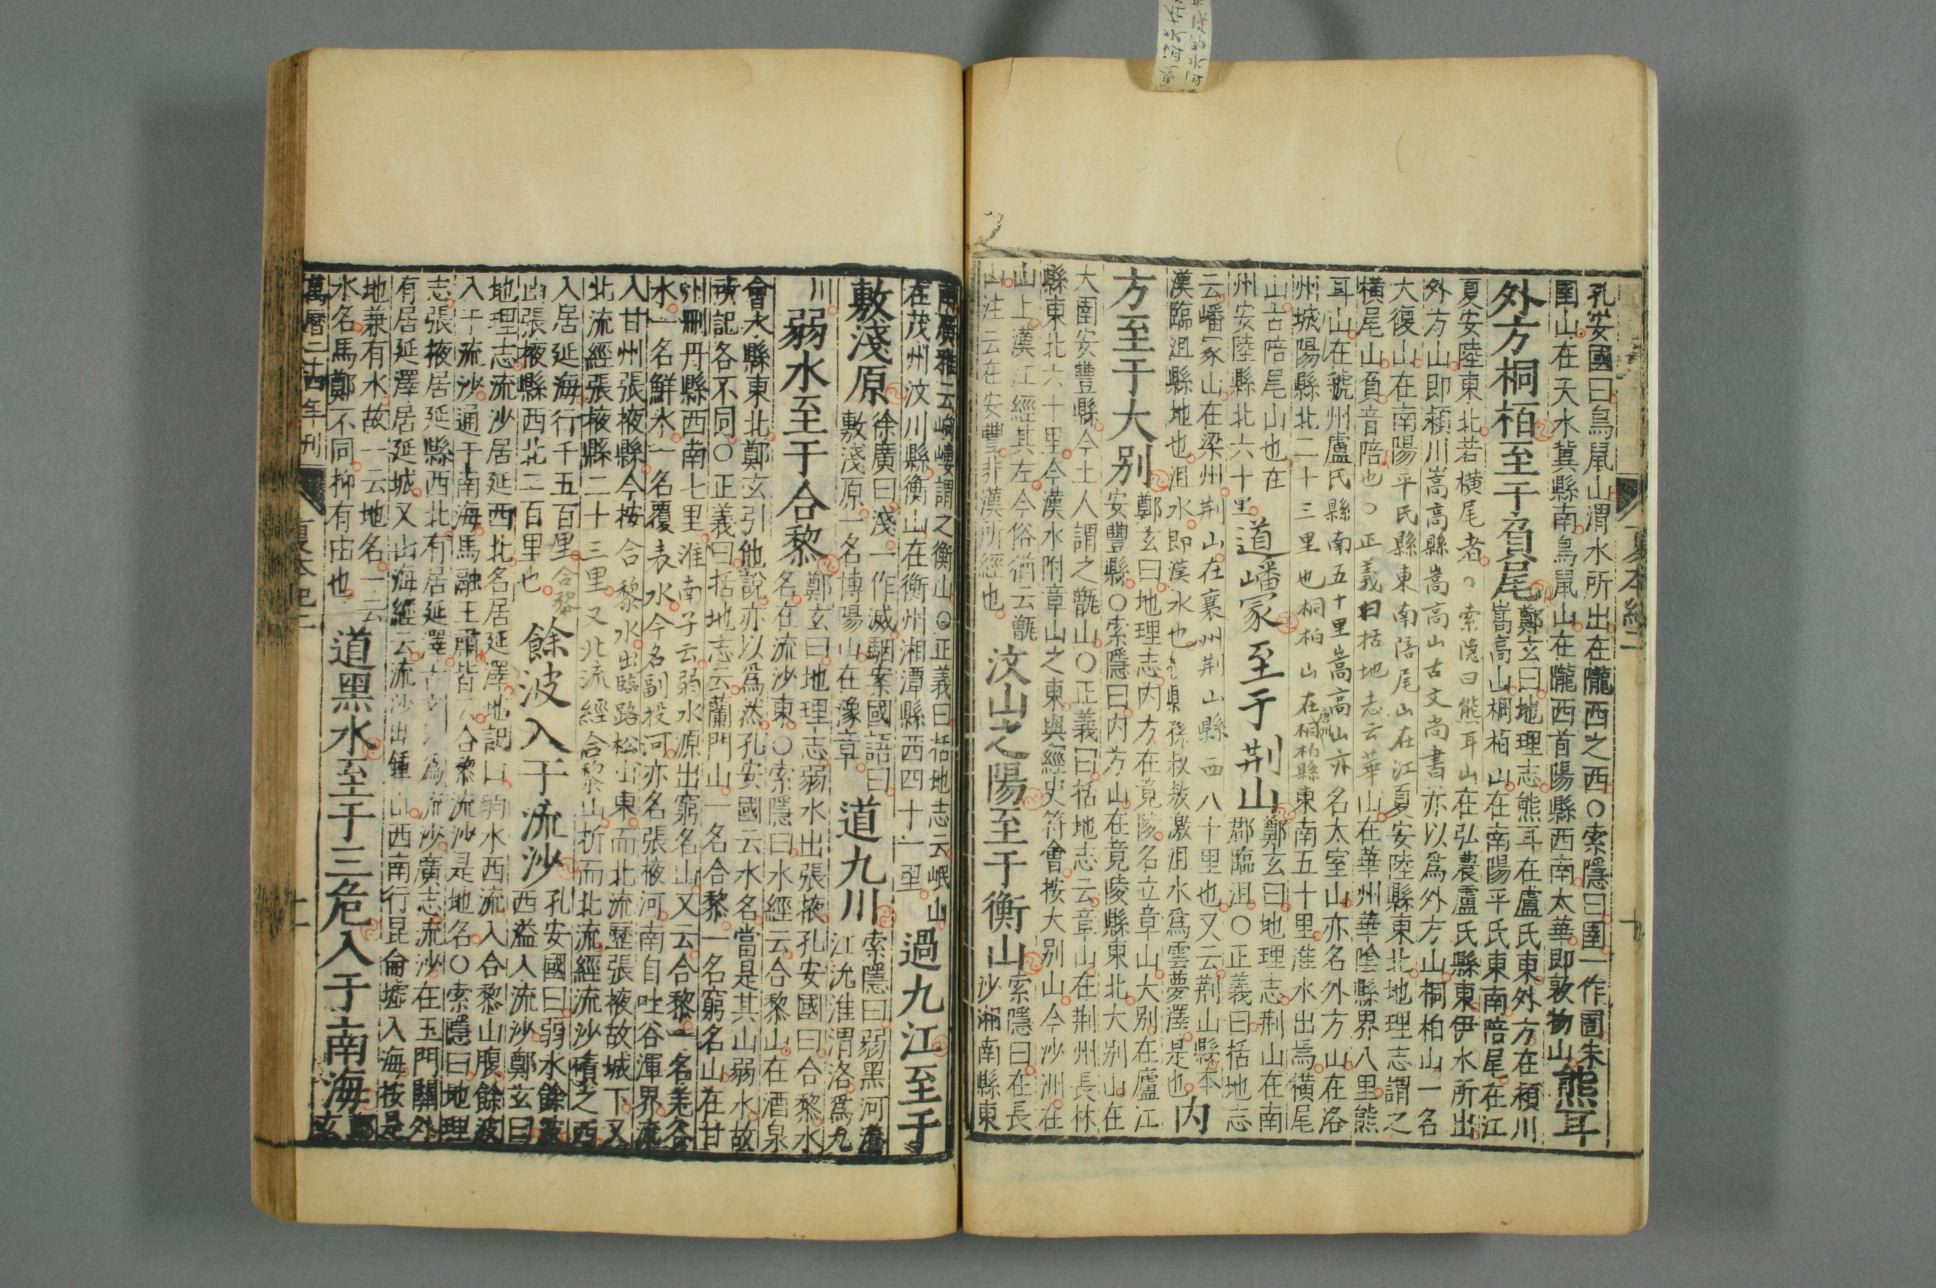 夏本紀二
孔安國曰鳥鼠山渭水所出在隴西之西○索隱曰圉一作圄朱
圉山在天水冀縣南鳥鼠山在隴西首陽縣西南太華即敦物山熊耳
外方桐栢至于負尾鄭玄曰地理志熊耳在盧氏東外方在潁川
嵩高山桐栢山在南陽平氏東南陪尾在江
夏安陸東北若橫尾者○索隱曰熊耳山在弘農盧氏縣東伊水所出
外方山即潁川嵩高縣嵩高山古文尚書亦以爲外方山桐柏山一名
大復山在南陽平氏縣東南陪尾山在江夏安陸縣東北地理志謂之
橫尾山負音陪也○正義曰括地志云華山在華州華陰縣界八里熊
耳山在虢州盧氏縣南五十里嵩高山亦名太室山亦名外方山在洛
州城陽縣北二十三里也桐柏山在桐柏縣東南五十里淮水出焉橫尾
山古陪尾山也在
州安陸縣北六十里道嶓冢至于荆山鄭玄曰地理志荆山在南
郡臨沮○正義曰括地志
云嶓冢山在梁州荆山在襄州荆山縣西八十里也又云荆山縣本
漢臨沮縣地也沮水即漢水也孫叔敖激沮水爲雲夢澤是也内
方至于大别鄭玄曰地理志内方在竟陵名立章山大别在廬江
安豐縣○索隱曰内方山在竟陵縣東北大别山在
大圉安豐縣今土人謂之甑山○正義曰括地志云章山在荆州長林
縣東北六十里今漢水附章山之東與經史符會按大别山今沙洲在
山上漢江經其左今俗猶云甑
山注云在安豐非漢所經也汶山之陽至于衡山索隱曰在長
沙湘南縣東
南廣雅云岣嶁謂之衡山○正義曰括地志云岷山
在茂州汶川縣衡山在衡州湘潭縣西四十一里過九江至于
敷淺原徐廣曰淺一作滅駰案國語曰
敷淺原一名博陽山在豫章道九川索隱曰弱黑河瀁
江沇淮渭洛爲九
川弱水至于合黎鄭玄曰地理志弱水出張掖孔安國曰合黎水
名在流沙東○索隱曰水經云合黎山在酒泉
會水縣東北鄭玄引他說亦以爲然孔安國云水名當是其山弱水故
所記各不同○正義曰括地志云蘭門山一名合黎一名窮名山在甘
州刪丹縣西南七里淮南子云弱水源出窮名山又云合黎一名羌谷
水一名鮮水一名覆表水今名副投河亦名張掖河南自吐谷渾界流
入甘州張掖縣今按合黎水出臨路松山東而北流歷張掖故城下又
北流經張掖縣二十三里又北流經合黎山折而北流經流沙磧之西
入居延海行千五百里合黎
山張掖縣西北二百里也餘波入于流沙孔安國曰弱水餘波
西溢入流沙鄭玄曰
地理志流沙居延西北名居延澤地記曰弱水西流入合黎山腹餘波
入于流沙通于南海馬融王肅皆云合黎流沙是地名○索隱曰地理
志張掖居延縣西北有居延澤古文以爲流沙廣志流沙在玉門關外
有居延澤居延城又山海經云流沙出鍾山西南行昆侖墟入海按是
地兼有水故一云地名一云
水名馬鄭不同抑有由也道黑水至于三危入于南海鄭
玄
萬曆二十四年刊
夏本紀二
十一